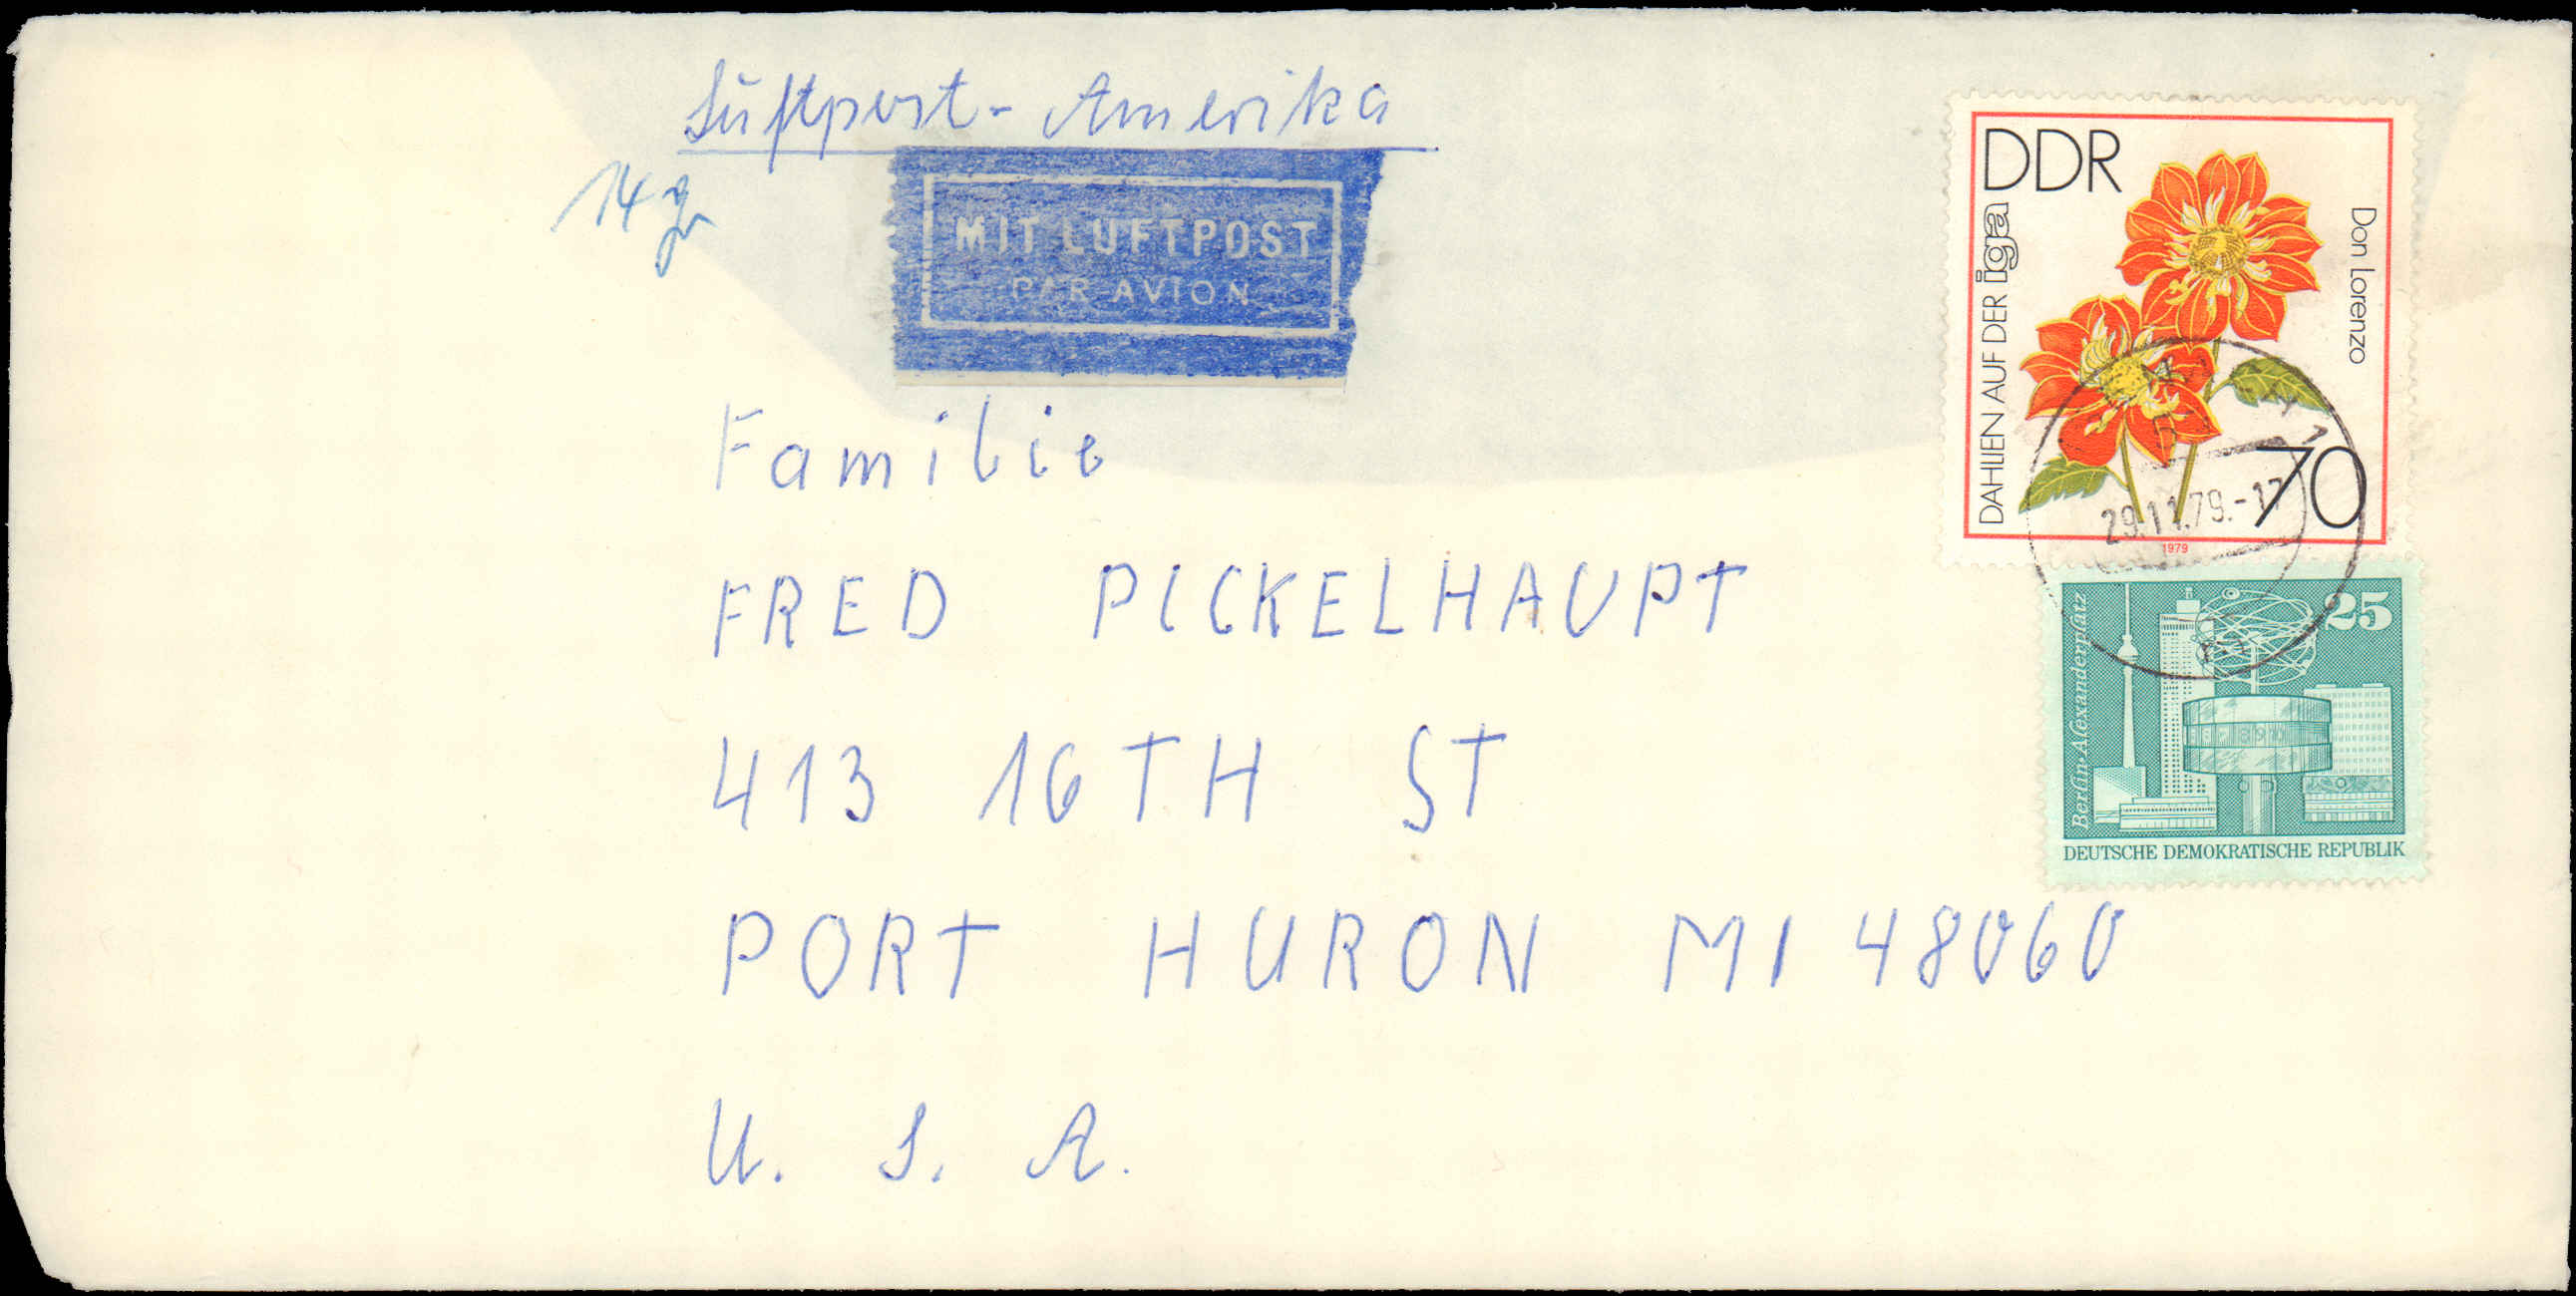 Luftpost-Amerika
14 gr
MIT LUFTPOST
PAR AVION
Familie
FRED PICKELHAUPT
413 16TH ST
PORT HURON MI 48060
U. S. A.
DDR
DAHLIEN AUF DER iga
Don Lorenzo
70
1979
29.11.79.-17
25
Berlin-Alexanderplatz
DEUTSCHE DEMOKRATISCHE REPUBLIK